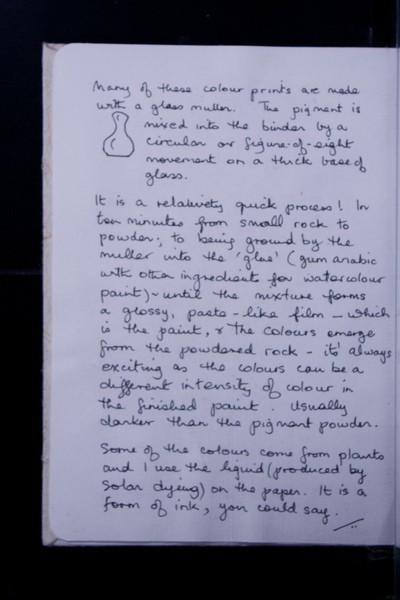 Many of these colour prints are made
with a glass muller. The pigment is
mixed into the binder by a
circular or figure-of-eight
movement on a thick base of
glass.
It is a relatively quick process! In
ten minutes from small rock to
powder; to being ground by the
muller into the 'glue' (gum arabic
with other ingredients for watercolour
paint) - until the mixture forms
a glossy, paste-like film - which
is the paint, & the colours emerge
from the powdered rock - it's always
exciting as the colours can be a
different intensity of colour in
the finished paint. Usually
darker than the pigment powder.
Some of the colours come from plants
and I use the liquid (produced by
solar dyeing) on the paper. It is a
form of ink, you could say.